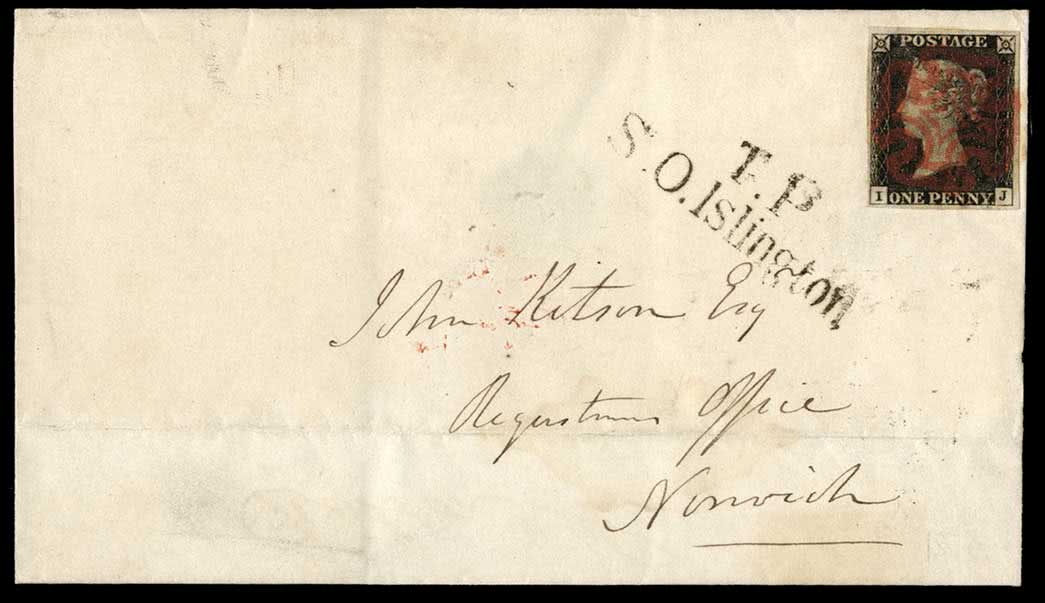 POSTAGE
I ONE PENNY J
T.P
S.O.Islington
John Kitson Esq
Regestrars Office
Norwich